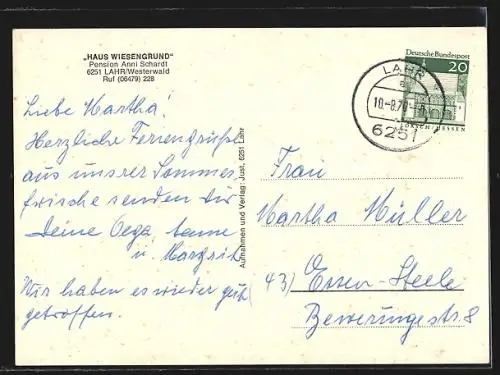 „HAUS WIESENGRUND"
Pension Anni Schardt
6251 LAHR/Westerwald
Ruf (06479) 228
Liebe Martha!
Herzliche Feriengrüße
aus unsrer Sommer-
frische senden dir
Deine Oega, Hanne
u. Margrit
Wir haben es wieder gut
getroffen.
Aufnahmen und Verlag: Just, 6251 Lahr
Deutsche Bundespost
20
LORSCH/HESSEN
LAHR
a
10.-8.70
6251
Frau
Martha Müller
43) Essen-Steele
Beweringestr 8